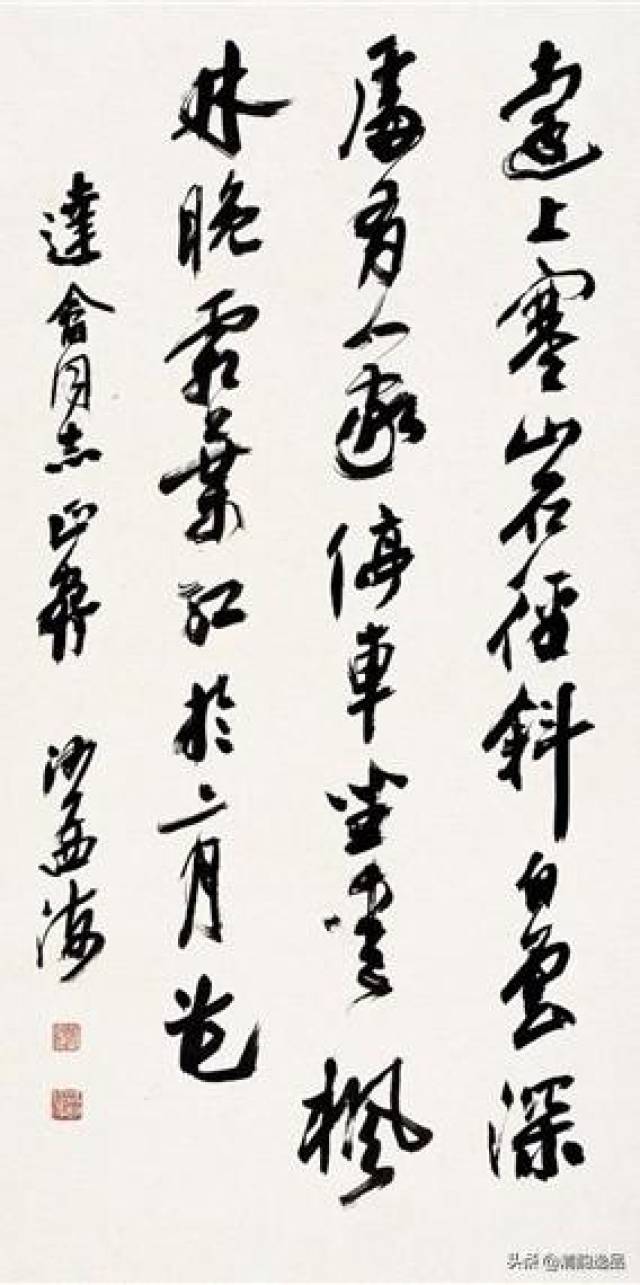 遠上寒山石徑斜白雲深
處有人家停車坐愛楓
林晚霜葉紅於二月花
達會同志正 沙孟海
头条 @清韵逸品